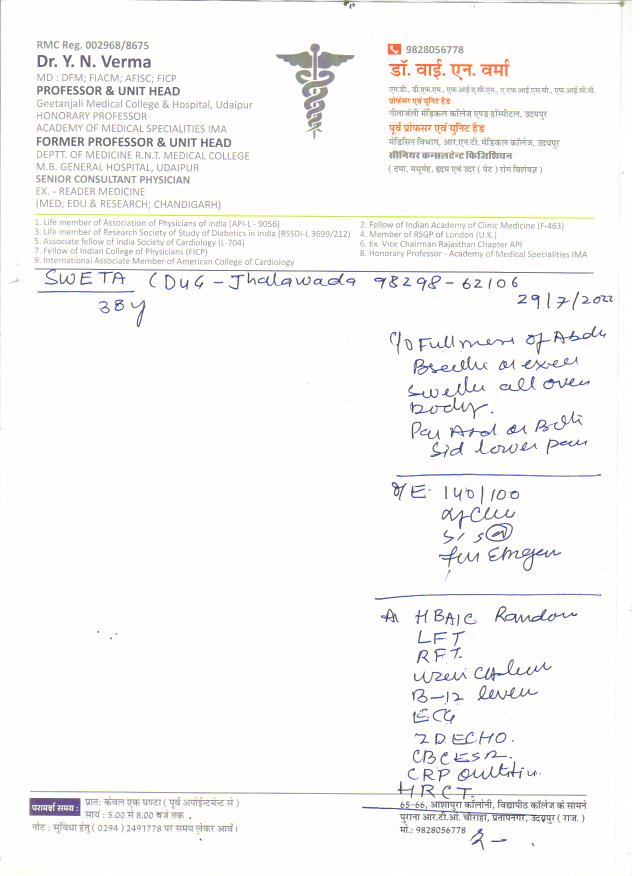 RMC Reg. 002968/8675
Dr. Y. N. Verma
MD : DFM; FIACM; AFISC; FICP
PROFESSOR & UNIT HEAD
Geetanjali Medical College & Hospital, Udaipur
HONORARY PROFESSOR
ACADEMY OF MEDICAL SPECIALITIES IMA
FORMER PROFESSOR & UNIT HEAD
DEPTT. OF MEDICINE R.N.T. MEDICAL COLLEGE
M.B. GENERAL HOSPITAL, UDAIPUR
SENIOR CONSULTANT PHYSICIAN
EX. - READER MEDICINE
(MED; EDU & RESEARCH; CHANDIGARH)
9828056778
डॉ. वाई. एन. वर्मा
एम.डी., डी.एफ.एम., एफ.आई.ए.सी.एम., ए.एफ.आई.एस.सी., एफ.आई.सी.पी.
प्रोफेसर एवं यूनिट हैड
गीतांजली मेडिकल कॉलेज एण्ड हॉस्पीटल, उदयपुर
पूर्व प्रोफेसर एवं यूनिट हैड
मेडिसिन विभाग, आर.एन.टी. मेडिकल कॉलेज, उदयपुर
सीनियर कन्सलटेन्ट फिजिशियन
( दमा, मधुमेह, हृदय एवं उदर ( पेट ) रोग विशेषज्ञ )
1. Life member of Association of Physicians of india (API-L - 9056)
3. Life member of Research Society of Study of Diabetics in india (RSSDI-L 3699/212)
5. Associate fellow of India Society of Cardiology (L-704)
7. Fellow of Indian College of Physicians (FICP)
9. International Associate Member of American College of Cardiology
2. Fellow of Indian Academy of Clinic Medicine (F-463)
4. Member of RSGP of London (U.K.)
6. Ex. Vice Chairman Rajasthan Chapter API
8. Honorary Professor - Academy of Medical Specialities IMA
SWETA CDUG - Jhalawada 98298-62106
38y
29/7/2022
C/O Fullness of Abdo
swellin all over
Body.
Pain And or
Sid lower pain
O/E 140/100
HBAIC Random
LFT
RFT.
B-12 leven
ECG
2D ECHO.
CBC ESR.
CRP
HRCT.
परामर्श समय :
प्रात: केवल एक घण्टा ( पूर्व अपोईन्टमेन्ट से )
सायं : 5.00 से 8.00 बजे तक
नोट : सुविधा हेतु ( 0294 ) 2491778 पर समय लेकर आवें।
65-66, आशापुरा कॉलोनी, विद्यापीठ कॉलेज के सामने
पुराना आर.टी.ओ. चौराहा, प्रतापनगर, उदयपुर ( राज. )
मो.: 9828056778
2-